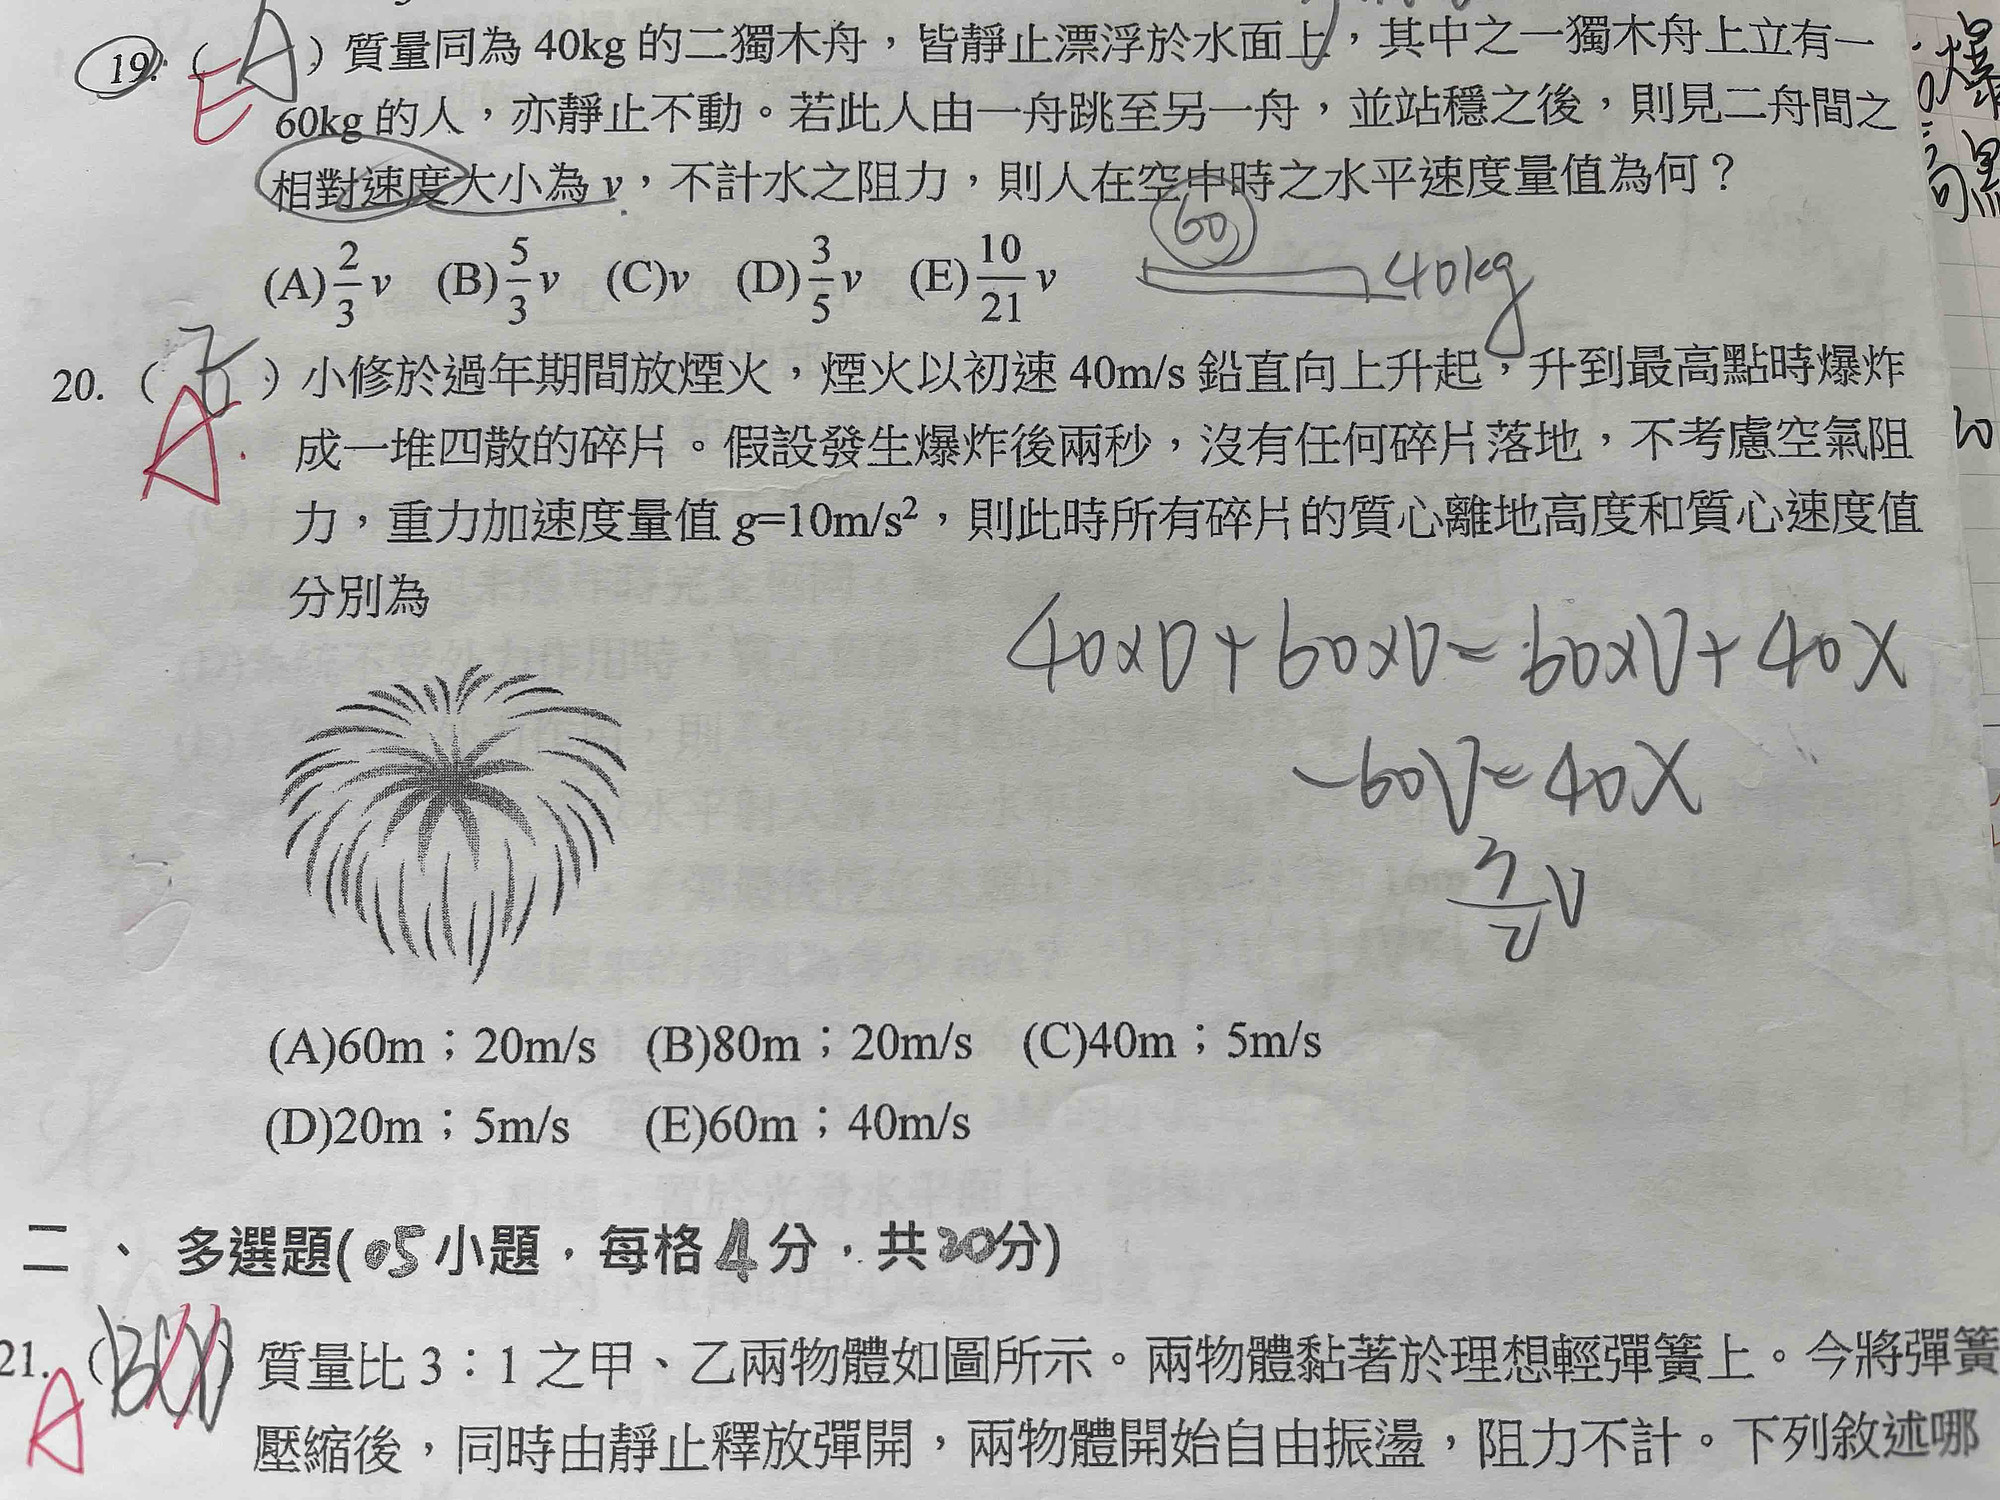 19. ( A ) 質量同為 40kg 的二獨木舟，皆靜止漂浮於水面上，其中之一獨木舟上立有一
E
60kg 的人，亦靜止不動。若此人由一舟跳至另一舟，並站穩之後，則見二舟間之
相對速度大小為 v，不計水之阻力，則人在空中時之水平速度量值為何？
60
(A) 2/3 v (B) 5/3 v (C)v (D) 3/5 v (E) 10/21 v
40kg
20. ( ) 小修於過年期間放煙火，煙火以初速 40m/s 鉛直向上升起，升到最高點時爆炸
A.
成一堆四散的碎片。假設發生爆炸後兩秒，沒有任何碎片落地，不考慮空氣阻
力，重力加速度量值 g=10m/s²，則此時所有碎片的質心離地高度和質心速度值
分別為
40×0+60×0=60×V+40X
-60V=40X
3/2 V
(A)60m；20m/s (B)80m；20m/s (C)40m；5m/s
(D)20m；5m/s (E)60m；40m/s
二、多選題(05小題，每格4分，共20分)
21. ( ) 質量比 3：1 之甲、乙兩物體如圖所示。兩物體黏著於理想輕彈簧上。今將彈簧
A
壓縮後，同時由靜止釋放彈開，兩物體開始自由振盪，阻力不計。下列敘述哪